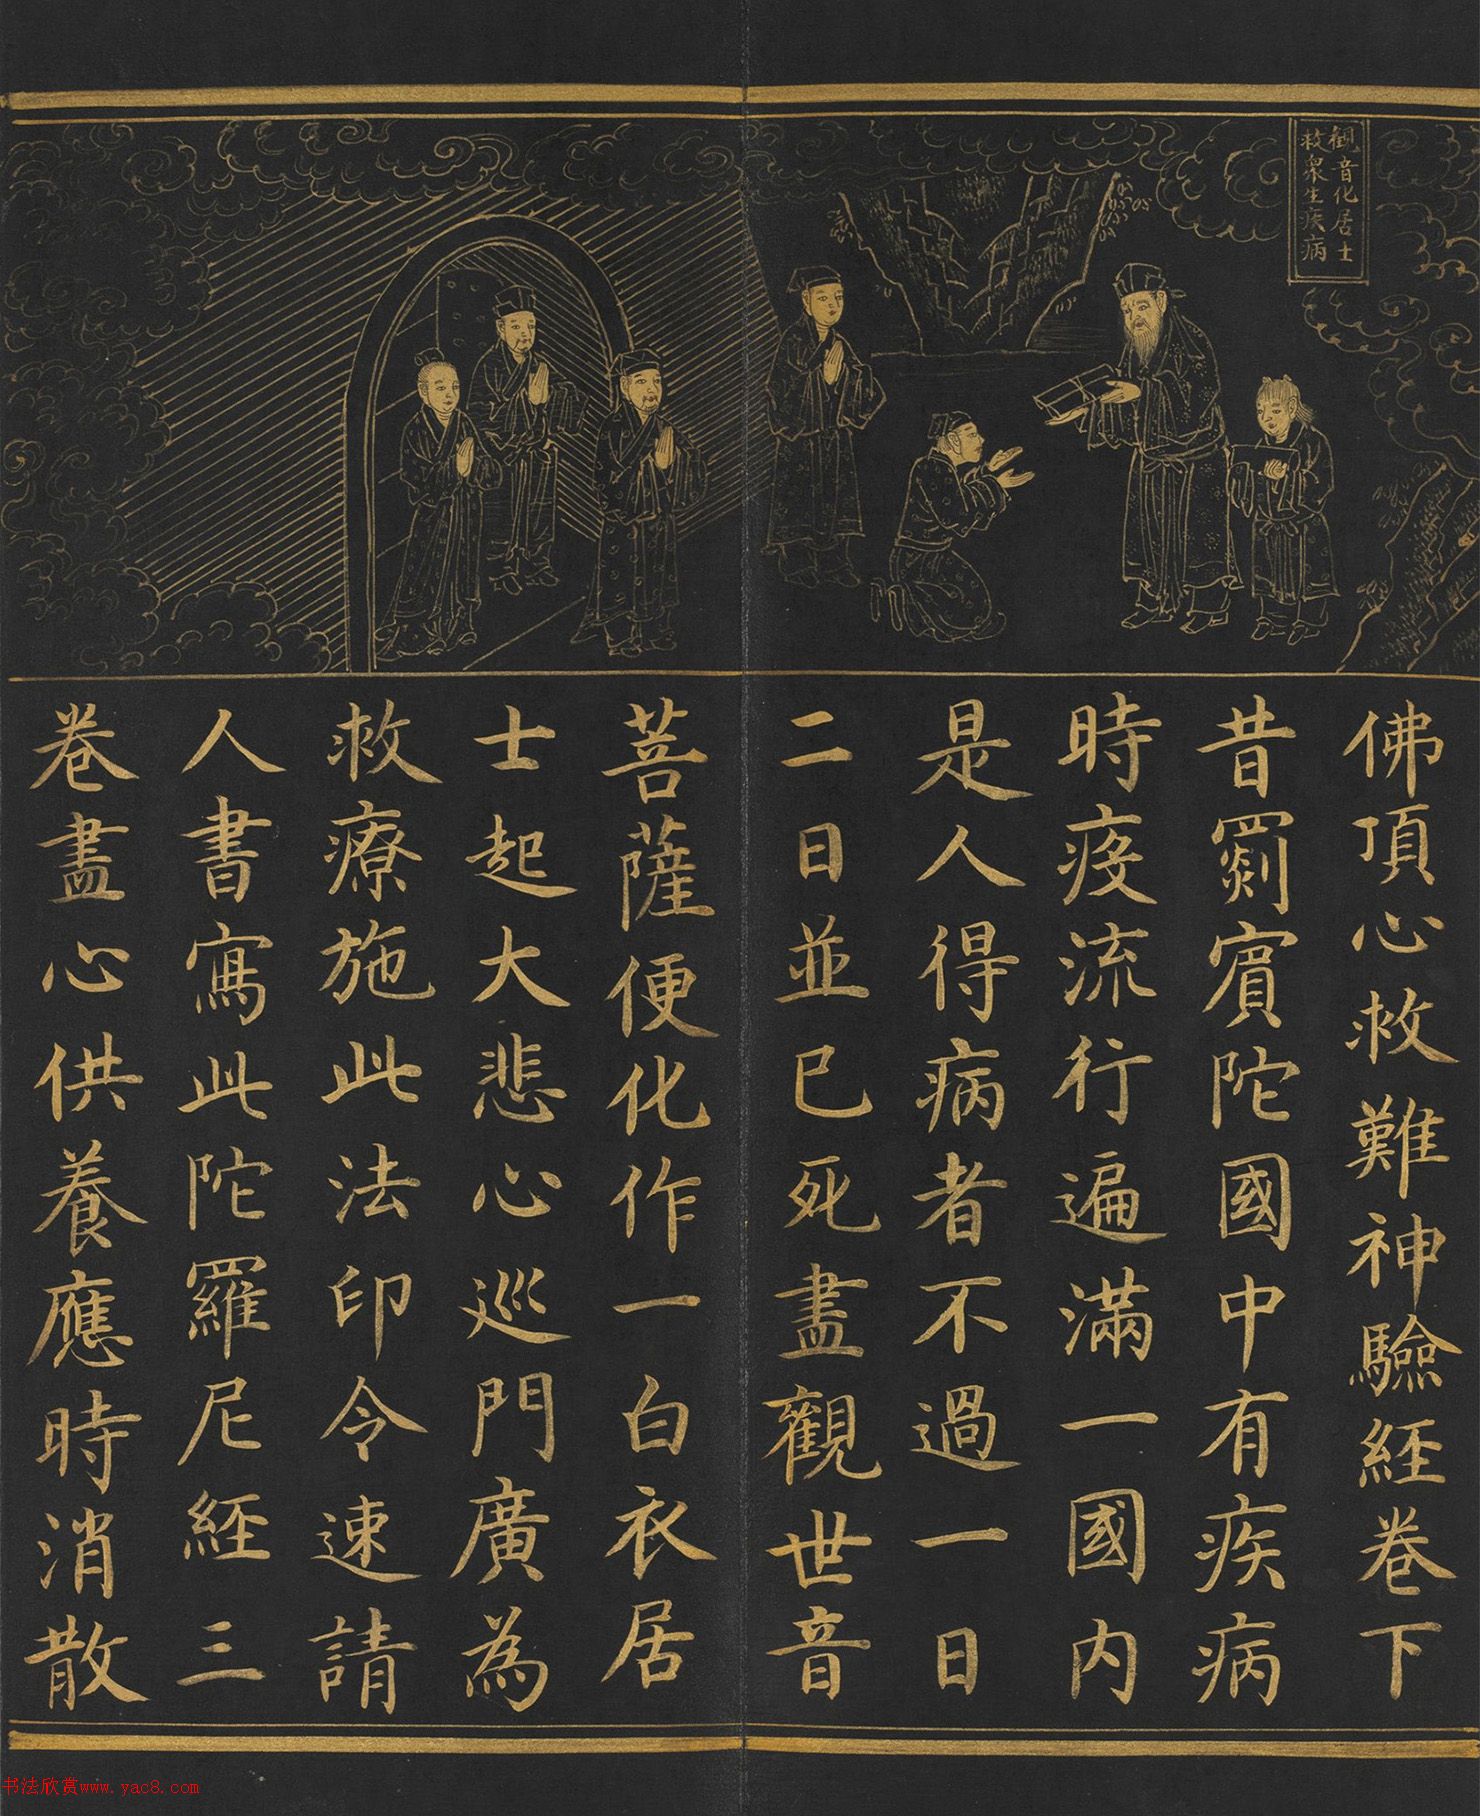 觀音化居士
救衆生疾病
佛頂心救難神驗經卷下
昔罽賓陀國中有疾病
時疫流行遍滿一國內
是人得病者不過一日
二日並已死盡觀世音
菩薩便化作一白衣居
士起大悲心巡門廣為
救療施此法印令速請
人書寫此陀羅尼經三
卷盡心供養應時消散
书法欣赏www.yac8.com